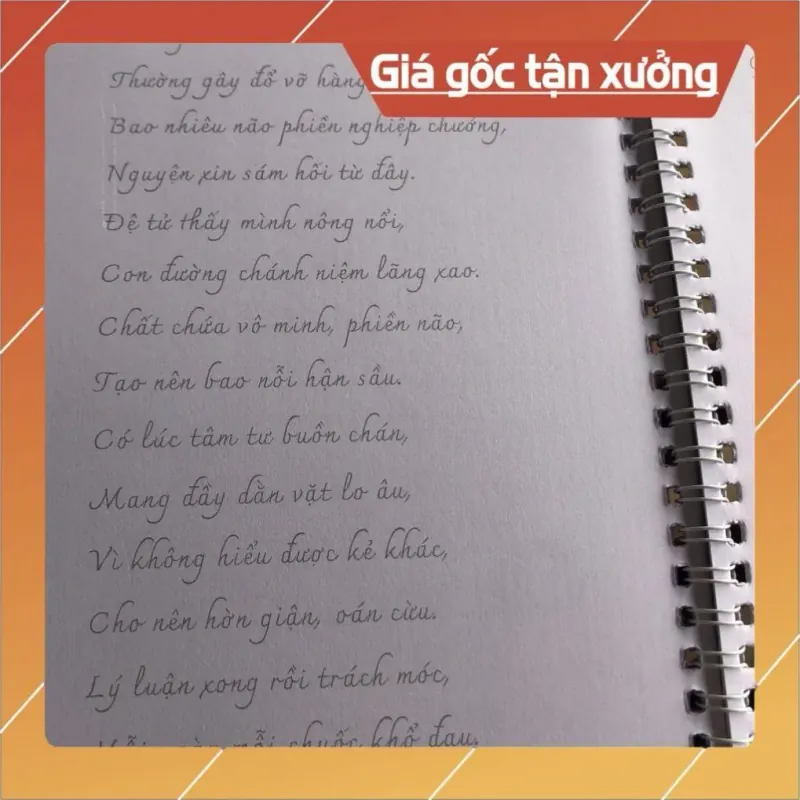 Giá gốc tận xưởng
Thường gây đổ vỡ hàng
Bao nhiêu não phiền nghiệp chướng,
Nguyện xin sám hối từ đây.
Đệ tử thấy mình nông nổi,
Con đường chánh niệm lãng xao.
Chất chứa vô minh, phiền não,
Tạo nên bao nỗi hận sầu.
Có lúc tâm tư buồn chán,
Mang đầy dằn vặt lo âu,
Vì không hiểu được kẻ khác,
Cho nên hờn giận, oán cừu.
Lý luận xong rồi trách móc,
mỗi chuốc khổ đau.